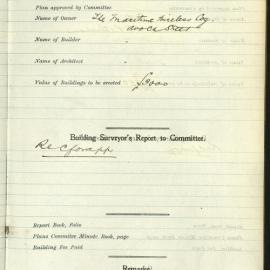 Plan approved by Committee
Name of Owner The Maritime Wireless Coy
Avoca Street
Name of Builder
Name of Architect
Value of Buildings to be erected £9000
Building Surveyor's Report to Committee.
Rec for app
Report Book, Folio
Plans Committee Minute Book, page
Building Fee Paid
Remarks